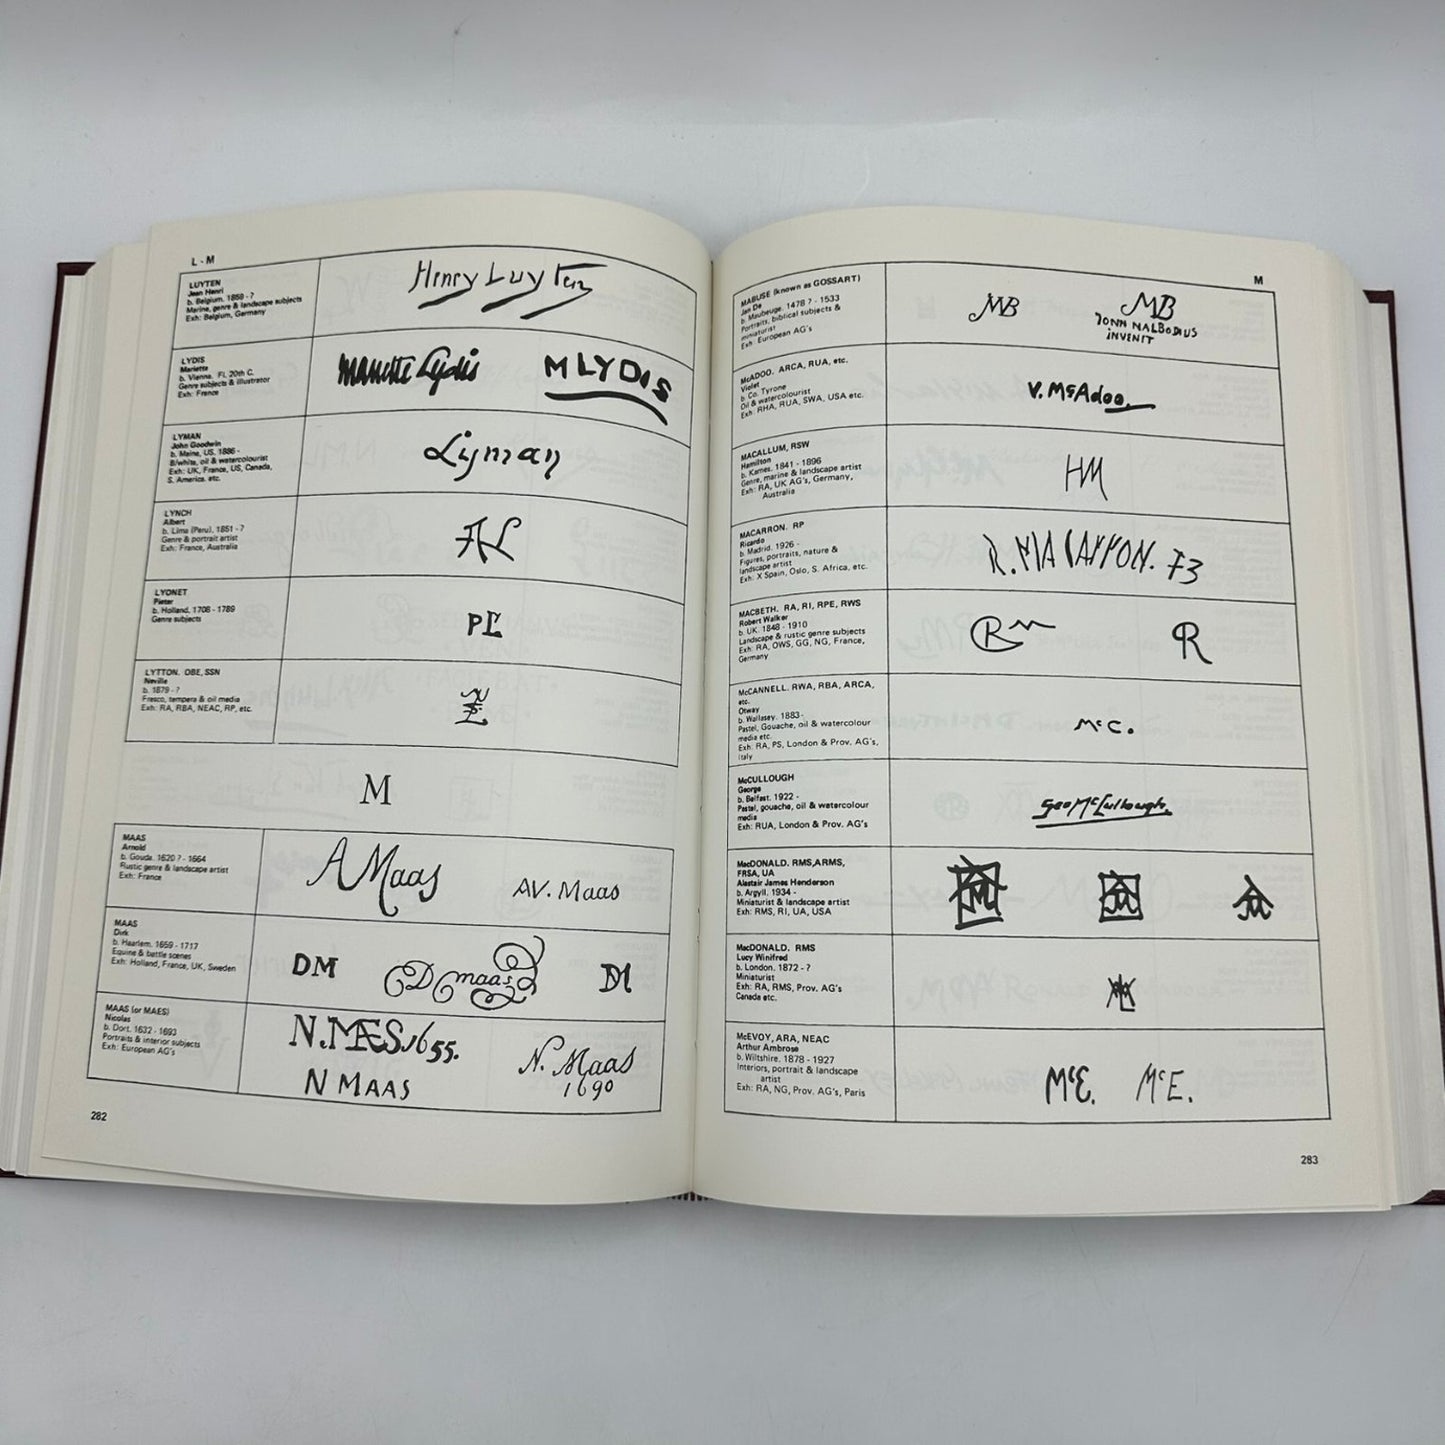 L - M
LUYTEN
Jean Henri
b. Belgium. 1859 - ?
Marine, genre & landscape subjects
Exh: Belgium, Germany
Henry Luyten
LYDIS
Mariette
b. Vienna. Fl. 20th C.
Genre subjects & illustrator
Exh: France
Mariette Lydis
MLYDIS
LYMAN
John Goodwin
b. Maine, US. 1886 -
B/white, oil & watercolourist
Exh: UK, France, US, Canada,
S. America, etc.
Lyman
LYNCH
Albert
b. Lima (Peru). 1851 - ?
Genre & portrait artist
Exh: France, Australia
AL
LYONET
Pieter
b. Holland. 1708 - 1789
Genre subjects
PL
LYTTON. OBE, SSN
Neville
b. 1879 - ?
Fresco, tempera & oil media
Exh: RA, RBA, NEAC, RP, etc.
M
MAAS
Arnold
b. Gouda. 1620 ? - 1664
Rustic genre & landscape artist
Exh: France
A Maas
AV. Maas
MAAS
Dirk
b. Haarlem. 1659 - 1717
Equine & battle scenes
Exh: Holland, France, UK, Sweden
DM
D maas
DM
MAAS (or MAES)
Nicolas
b. Dort. 1632 - 1693
Portraits & interior subjects
Exh: European AG's
N.MAES 1655.
N MAAS
N. Maas
1690
282
M
MABUSE (known as GOSSART)
Jan De
b. Maubeuge. 1478 ? - 1533
Portraits, biblical subjects &
miniaturist
Exh: European AG's
MB
MB
JONN NALBODIUS
INVENIT
McADOO. ARCA, RUA, etc.
Violet
b. Co. Tyrone
Oil & watercolourist
Exh: RHA, RUA, SWA, USA etc.
V. McAdoo.
MACALLUM, RSW
Hamilton
b. Kames. 1841 - 1896
Genre, marine & landscape artist
Exh: RA, UK AG's, Germany,
Australia
HM
MACARRON. RP
Ricardo
b. Madrid. 1926 -
Figures, portraits, nature &
landscape artist
Exh: X Spain, Oslo, S. Africa, etc.
R. MACARRON. 73
MACBETH. RA, RI, RPE, RWS
Robert Walker
b. UK. 1848 - 1910
Landscape & rustic genre subjects
Exh: RA, OWS, GG, NG, France,
Germany
McCANNELL. RWA, RBA, ARCA,
etc.
Otway
b. Wallasey. 1883-
Pastel, Gouache, oil & watercolour
media etc.
Exh: RA, PS, London & Prov. AG's,
Italy
McC.
McCULLOUGH
George
b. Belfast. 1922 -
Pastel, gouache, oil & watercolour
media
Exh: RUA, London & Prov. AG's
Geo McCullough.
MacDONALD. RMS,ARMS,
FRSA, UA
Alastair James Henderson
b. Argyll. 1934 -
Miniaturist & landscape artist
Exh: RMS, RI, UA, USA
MacDONALD. RMS
Lucy Winifred
b. London. 1872 - ?
Miniaturist
Exh: RA, RMS, Prov. AG's
Canada etc.
McEVOY, ARA, NEAC
Arthur Ambrose
b. Wiltshire. 1878 - 1927
Interiors, portrait & landscape
artist
Exh: RA, NG, Prov. AG's, Paris
McE.
McE.
283